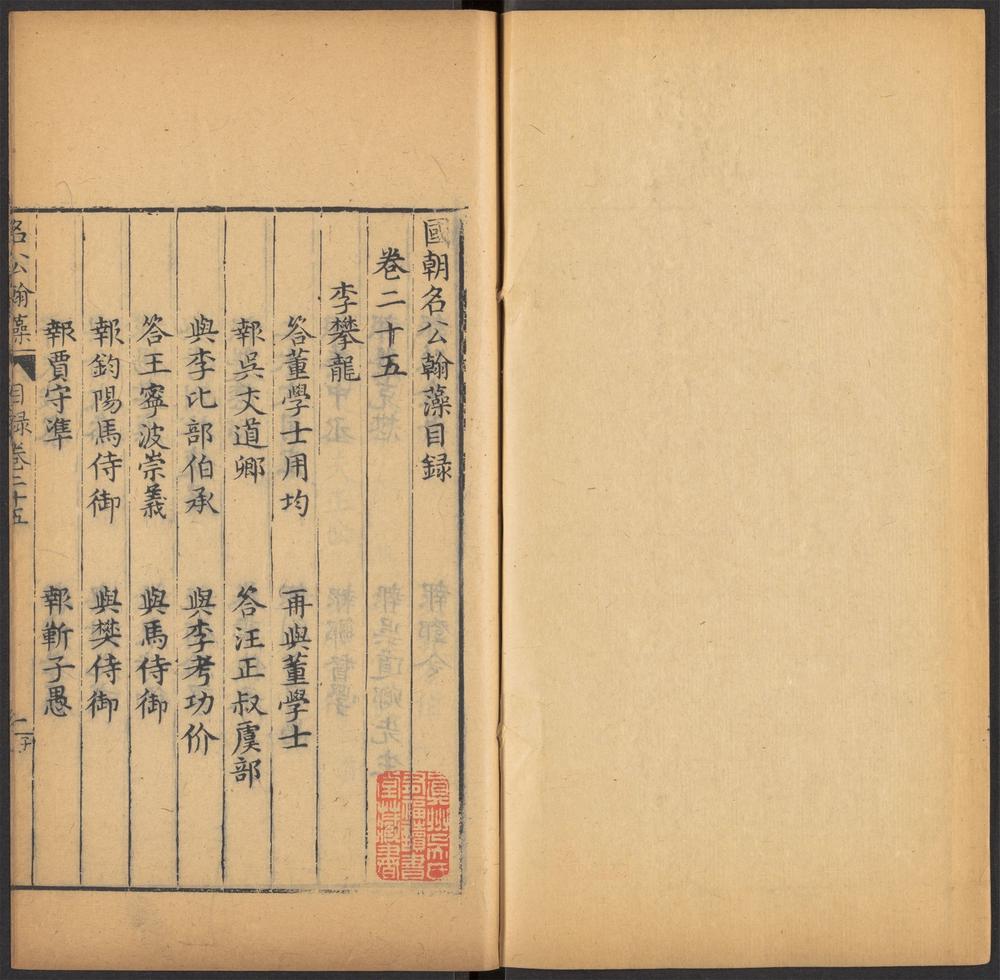 國朝名公翰藻目録
卷二十五
李攀龍
答董學士用均
再與董學士
報吳丈道卿
答汪正叔虞部
與李比部伯承
與李考功价
答王寧波崇義
與馬侍御
報鈞陽馬侍御
與樊侍御
報賈守準
報靳子愚
名公翰藻
目録卷二十五
一
真州吳氏
有福讀書
堂藏書